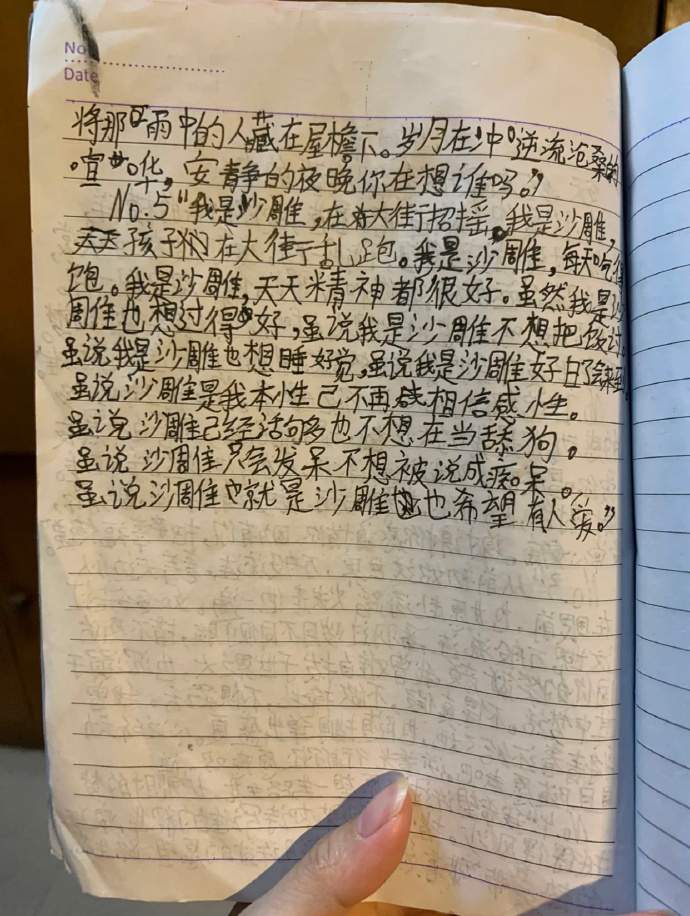 No.
Date
将那雨中的人藏在屋檐下。岁月在冲逆流沧桑的
喧哗，安静的夜晚你在想谁吗。”
No.5 “我是沙雕，在大街招摇。我是沙雕，
天天孩子们在大街乱跑。我是沙雕，每天吃得
饱。我是沙雕，天天精神都很好。虽然我是沙
雕也想过得好，虽说我是沙雕不想把饭讨。
虽说我是沙雕也想睡好觉，虽说我是沙雕好日子会来到。
虽说沙雕是我本性已不再相信感性。
虽说沙雕已经活够多也不想在当舔狗。
虽说沙雕只会发呆不想被说成痴呆。
虽说沙雕也就是沙雕也希望有人爱。”